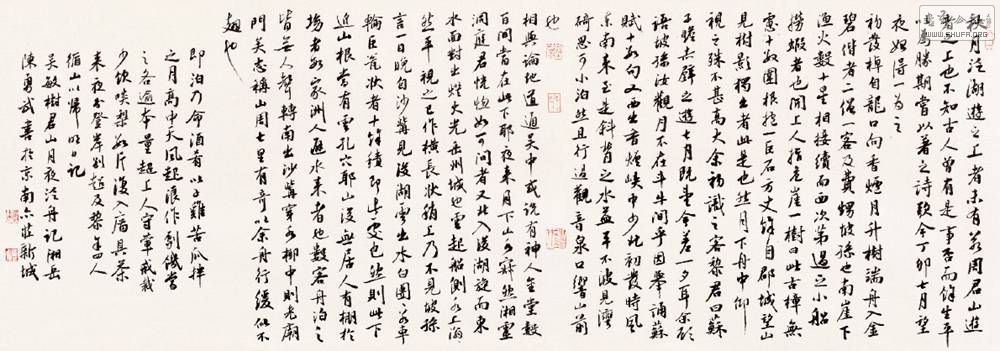 秋月泛湖游之上者未有若周君山游
者之上也不知古人曾有是事否而余生平
以为胜期尝以著之诗歌今丁卯七月望
夜始得一为之
初发棹自龙口向香炉月升树端舟入金
碧偕者二僧一客及费甥坡孙也南崖下
渔火数十星相接续而西次第过之小船
捞虾者也开上人指危崖一树曰此古樟无
虑十数围根抱一巨石方丈余自郡城望山
见树影独出者此是也然月下舟中仰
视之殊不甚高大余初识之客黎君曰苏
子瞻赤壁之游七月既望今差一夕耳余顾
语坡孙汝观月不在斗牛间乎因举诵苏
赋十数句又西出香炉峡中少北初发时风
东南来至是斜背之水益平不波见湾
碕思可小泊然且行过观音泉口响山前
也
相与论地道通吴中或说有神人金堂数
百间当在此下耶夜来月下山水寂然湘灵
洞庭君恍惚如可问者又北入后湖旋而东
水面对出灯火光岳州城也云起船侧水上滃
然平视之已作横长状稍上乃不见坡孙
言一日晚自沙嘴见后湖云出水白团若车
轮巨瓮状者十余积即此处也然则此下
近山根当有云孔穴耶山后无居人有棚于
坳者数家洲人避水来者也数客舟泊之
皆无人声转南出沙嘴穿水柳中则老庙
门矣志称山周七里有奇以余舟行缓似不
翅也
即泊乃命酒肴以子鸡苦瓜拌
之月高中天风起浪作剧饮当
之各逾本量超上人守荤戒裁
少饮啖梨数片复入庙具茶
来夜分登岸别超及黎余四人
循山以归明日记
吴敏树君山月夜泛舟记湘岳
陈勇武书于京南六庄新城
WWW.SHUFR.ORG